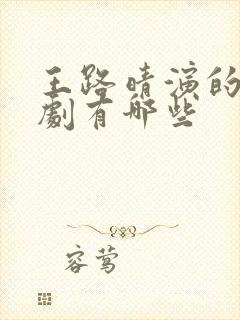 王路晴演的
劇有哪些
容莺